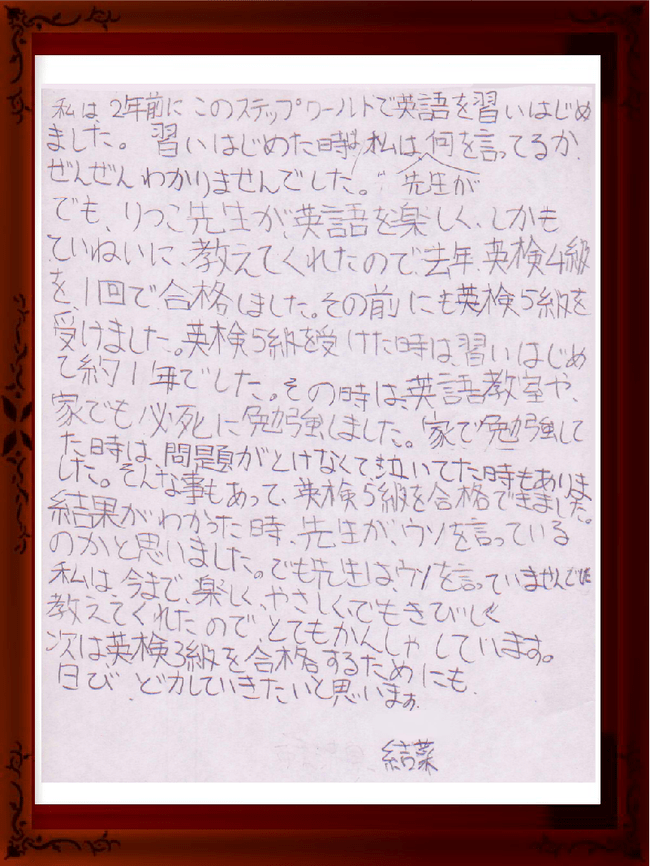 私は、2年前に このステップワールドで英語を習いはじめ
ました。 習いはじめた時は、私は、先生が何を言ってるか、
ぜんぜん わかりませんでした。
でも、りつこ先生が、英語を楽しく、しかも
ていねいに、教えてくれたので、去年、英検4級
を、1回で合格しました。その前にも英検5級を
受けました。英検5級を受けた時は、習いはじめ
て約1年でした。その時は、英語教室や、
家でも必死に勉強しました。家で勉強して
た時は、問題がとけなくて泣いてた時もありま
した。そんな事もあって、英検5級を合格できました。
結果がわかった時、先生が、ウソを言っている
のかと思いました。でも先生は、ウソを言っていませんでした
私は、今まで、楽しく、やさしく、でもきびしく
教えてくれたので、とてもかんしゃしています。
次は英検3級を合格するためにも、
日び、どカしていきたいと思います。
結菜